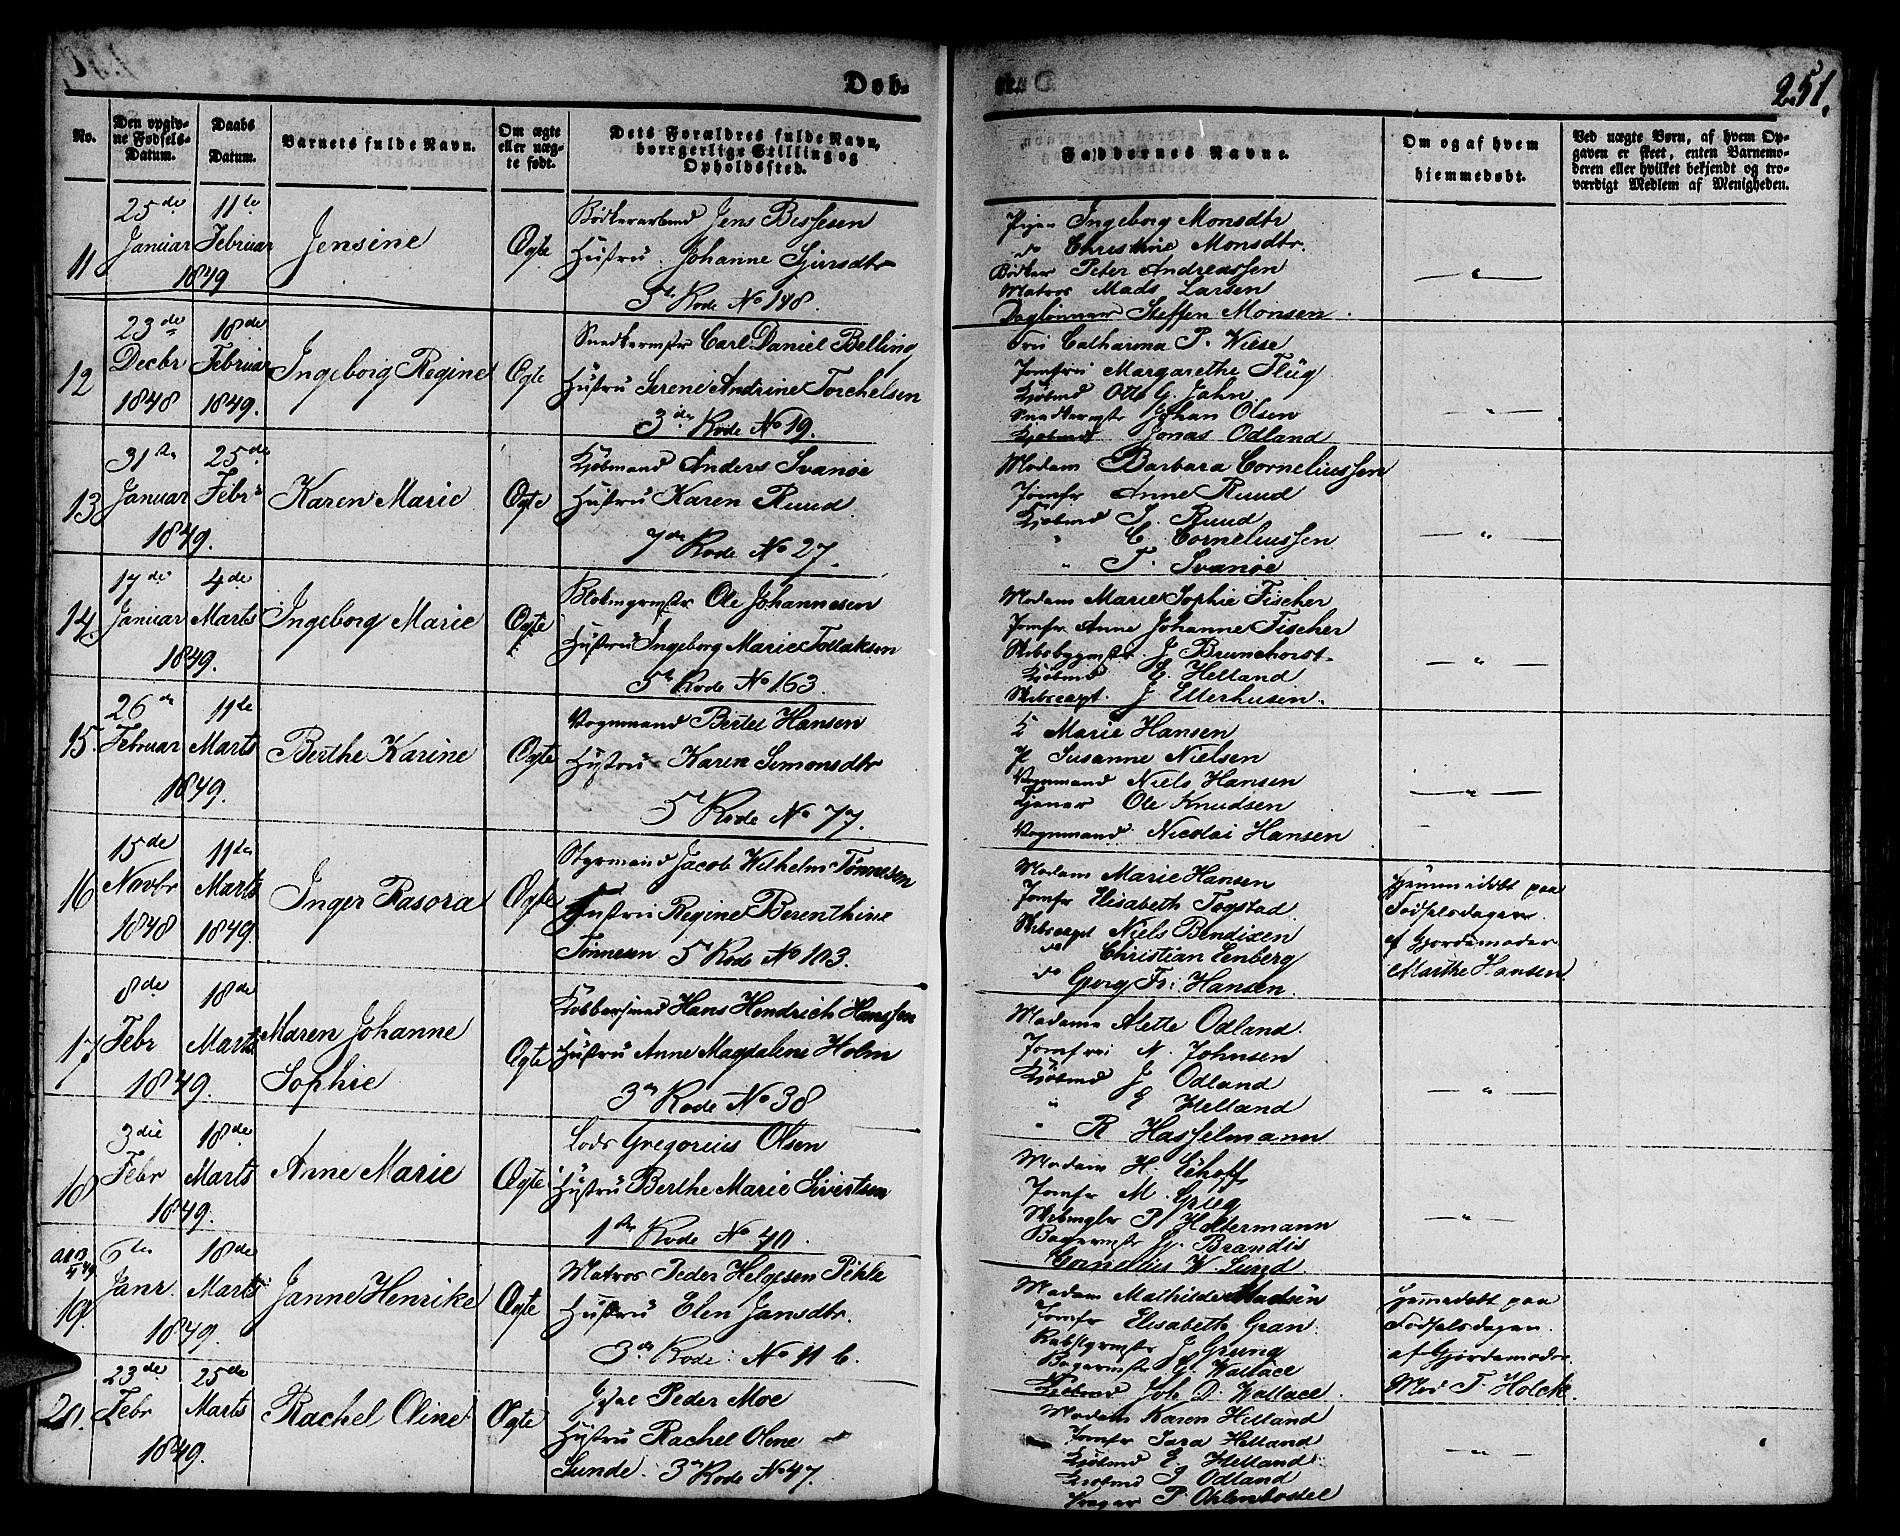 Døb-
251.
No.
Den opgiv-
ne Fødsels-
Datum.
Daabs
Datum.
Barnets fulde Navn.
Om ægte
eller uæg-
te født.
Dets Forældres fulde Navn,
borgerlige Stilling og
Opholdssted.
Faddernes Navne.
Om og af hvem
hjemmedøbt.
Ved uægte Børn, af hvem Op-
gaven er skeet, enten Barnemo-
deren eller hvilket bekjendt og tro-
værdigt Medlem af Menigheden.
11
25de Januar
11te Februar
1849
Jensine
Ægte
Jens Bessesen
Hustru Johanne Sjursdtr
5te Rode No 148.
Pigen Ingeborg Monsdtr
do Christine Monsdtr.
Bødker Peter Andreassen
Matros Mads Larsen
Daglønner Steffen Monsen.
12
23de Decbr 1848
18de Februar 1849.
Ingeborg Regine
Ægte
Snedkermstr Carl Daniel Belling
Hustru Serene Andrine Torchelsen
3de Rode No 19.
Fru Catharina P. Wiese
Jomfru Margarethe Flüg
Kjøbmd Otto G. Jahn
Snedkermstr Johan Olsen
Kjøbmd Jonas Odland
13
31te Januar
25de Febr
1849.
Karen Marie
Ægte
Kjøbmand Anders Svanøe
Hustru Karen Ruud
7de Rode No 27.
Madam Barbara Corneliussen
Jomfr Anne Ruud
Kjøbmd J. Ruud
" C. Corneliussen
" T. Svanøe
14.
17de Januar
4de Marts
1849.
Ingeborg Marie
Ægte
Ole Johannesen
Hustru Ingeborg Marie Tollaksen
5te Rode No 163.
Madam Marie Sophie Fischer
Jomfr Anne Johanne Fischer
Skibsbygmstr J Brunchorst
Kjøbmd E. Helland
Skibscapt. J Ellerhusen.
15.
26de Februar
11te Marts
1849.
Berthe Karine
Ægte
Vognmand Bertel Hansen
Hustru Karen Simonsdtr
5te Rode No 77.
K Marie Hansen
P Susanne Nielsen
Vognmand Niels Hansen
Tjener Ole Knudsen
Vognmand Nicolai Hansen
16
15de Novbr 1848
11te Marts 1849.
Inger Rasora
Ægte
Styrmand Jacob Wilhelm Tønnesen
Hustru Regine Berenthine
Tønnesen 5te Rode No 103.
Madam Marie Hansen
Jomfr Elisabeth Tagstad.
Skibscapt Niels Bendixen
do Christian Lenberg
do Georg Fr: Hansen.
Hjemmedøbt paa
Fødselsdagen
af Gjordemoder
Marthe Hansen
17
8de Febr
18de Marts
1849.
Maren Johanne
Sophie
Ægte
Kobbersmed Hans Hendrich Hanssen
Hustru Anne Magdalene Holm
3de Rode No 38
Madame Alette Odland.
Jomfru N. Johnsen
Kjøbmd J Odland
" E Helland
" R Hasselmann
18
3die Febr
18de Marts
1849.
Anne Marie
Ægte
Lods Gregorius Olsen
Hustru Berthe Marie Sivertsen
1ste Rode No 40.
Madam H. Eihoff
Jomfr M. Grieg
Skibmgler P. Holtermann
Bagermstr G. Brandis
Cornelius W. Sund.
19.
6te Janr.
18de Marts
1849.
Janne Henrike
Ægte
Matros Peder Helgesen Pihle
Hustru Elen Jansdtr.
3de Rode: No 11 b.
Madam Mathilde Madsen
Jomfr Elisabeth Gran.
Rebslgrmstr J Grung
Bagermstr G. Wallace
Kjøbmd Joh D. Wallace.
Hjemmedøbt paa
Fødselsdagen.
af Gjordemoder
Mad T. Holck.
20.
23de Febr
25de Marts
1849.
Rachel Oline
Ægte
Peder Moe
Hustru Rachel Olene
Sunde. 3de Rode No 47.
Madam Karen Helland
Jomfr Sara Helland
Kjøbmd E. Helland
Kjøbmd J Odland
P. Ohlenbostel